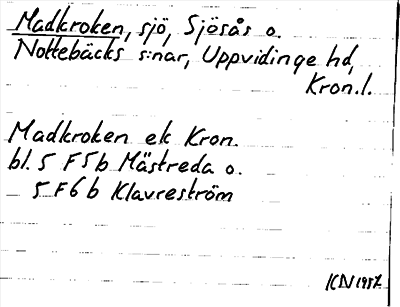 Madkroken, sjö, Sjösås o.
Nottebäcks s:nar, Uppvidinge hd,
Kron.l.
Madkroken ek Kron.
bl. 5 F 5 b Mästreda o.
5 F 6 b Klavreström
KN 1957